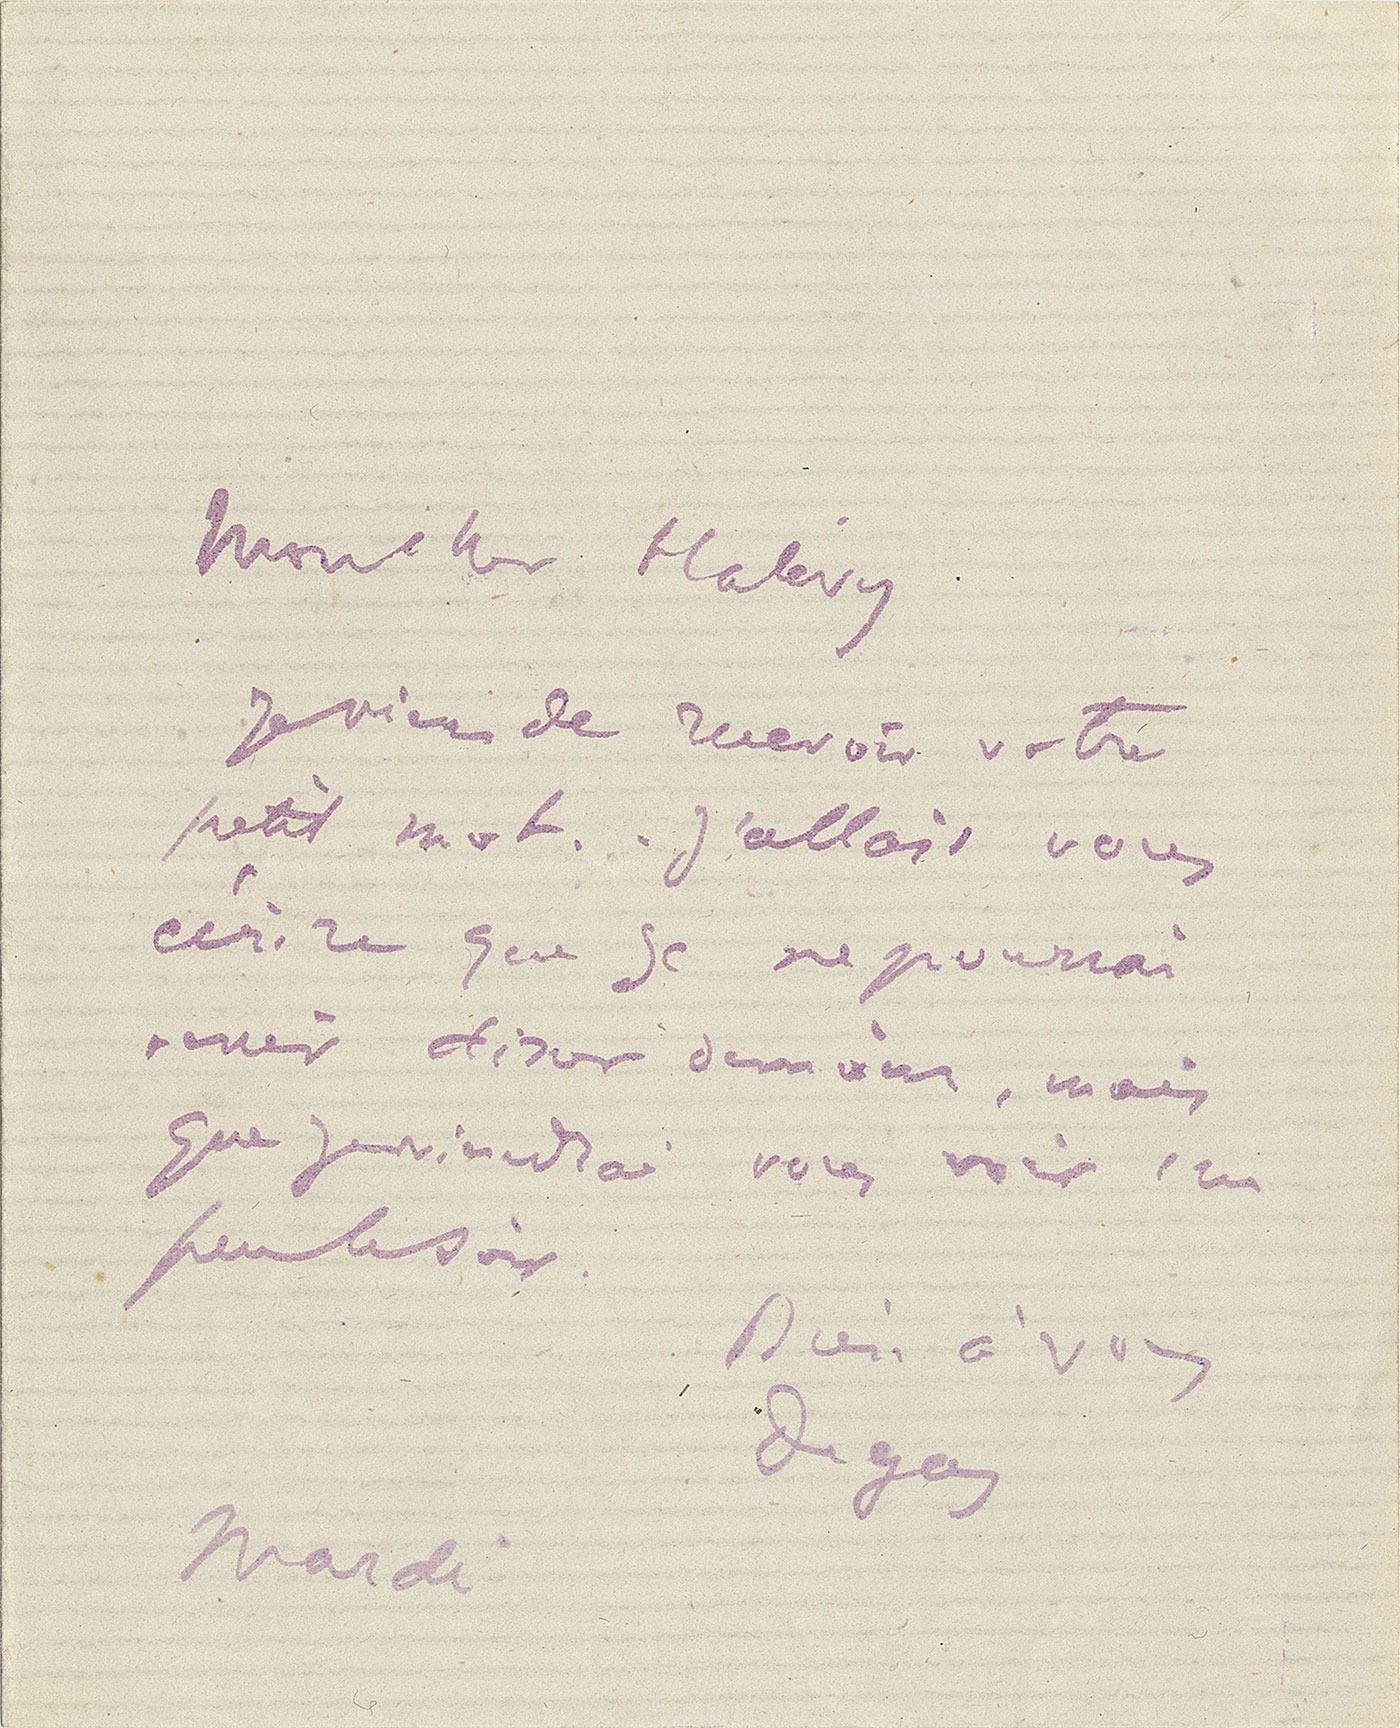 Mon cher Halévy
Je viens de recevoir votre
petit mot. . J'allais vous
écrire que je ne pourrai
venir dîner demain, mais
que je viendrai vous voir un
peu le soir.
Bien à vous
Degas
Mardi